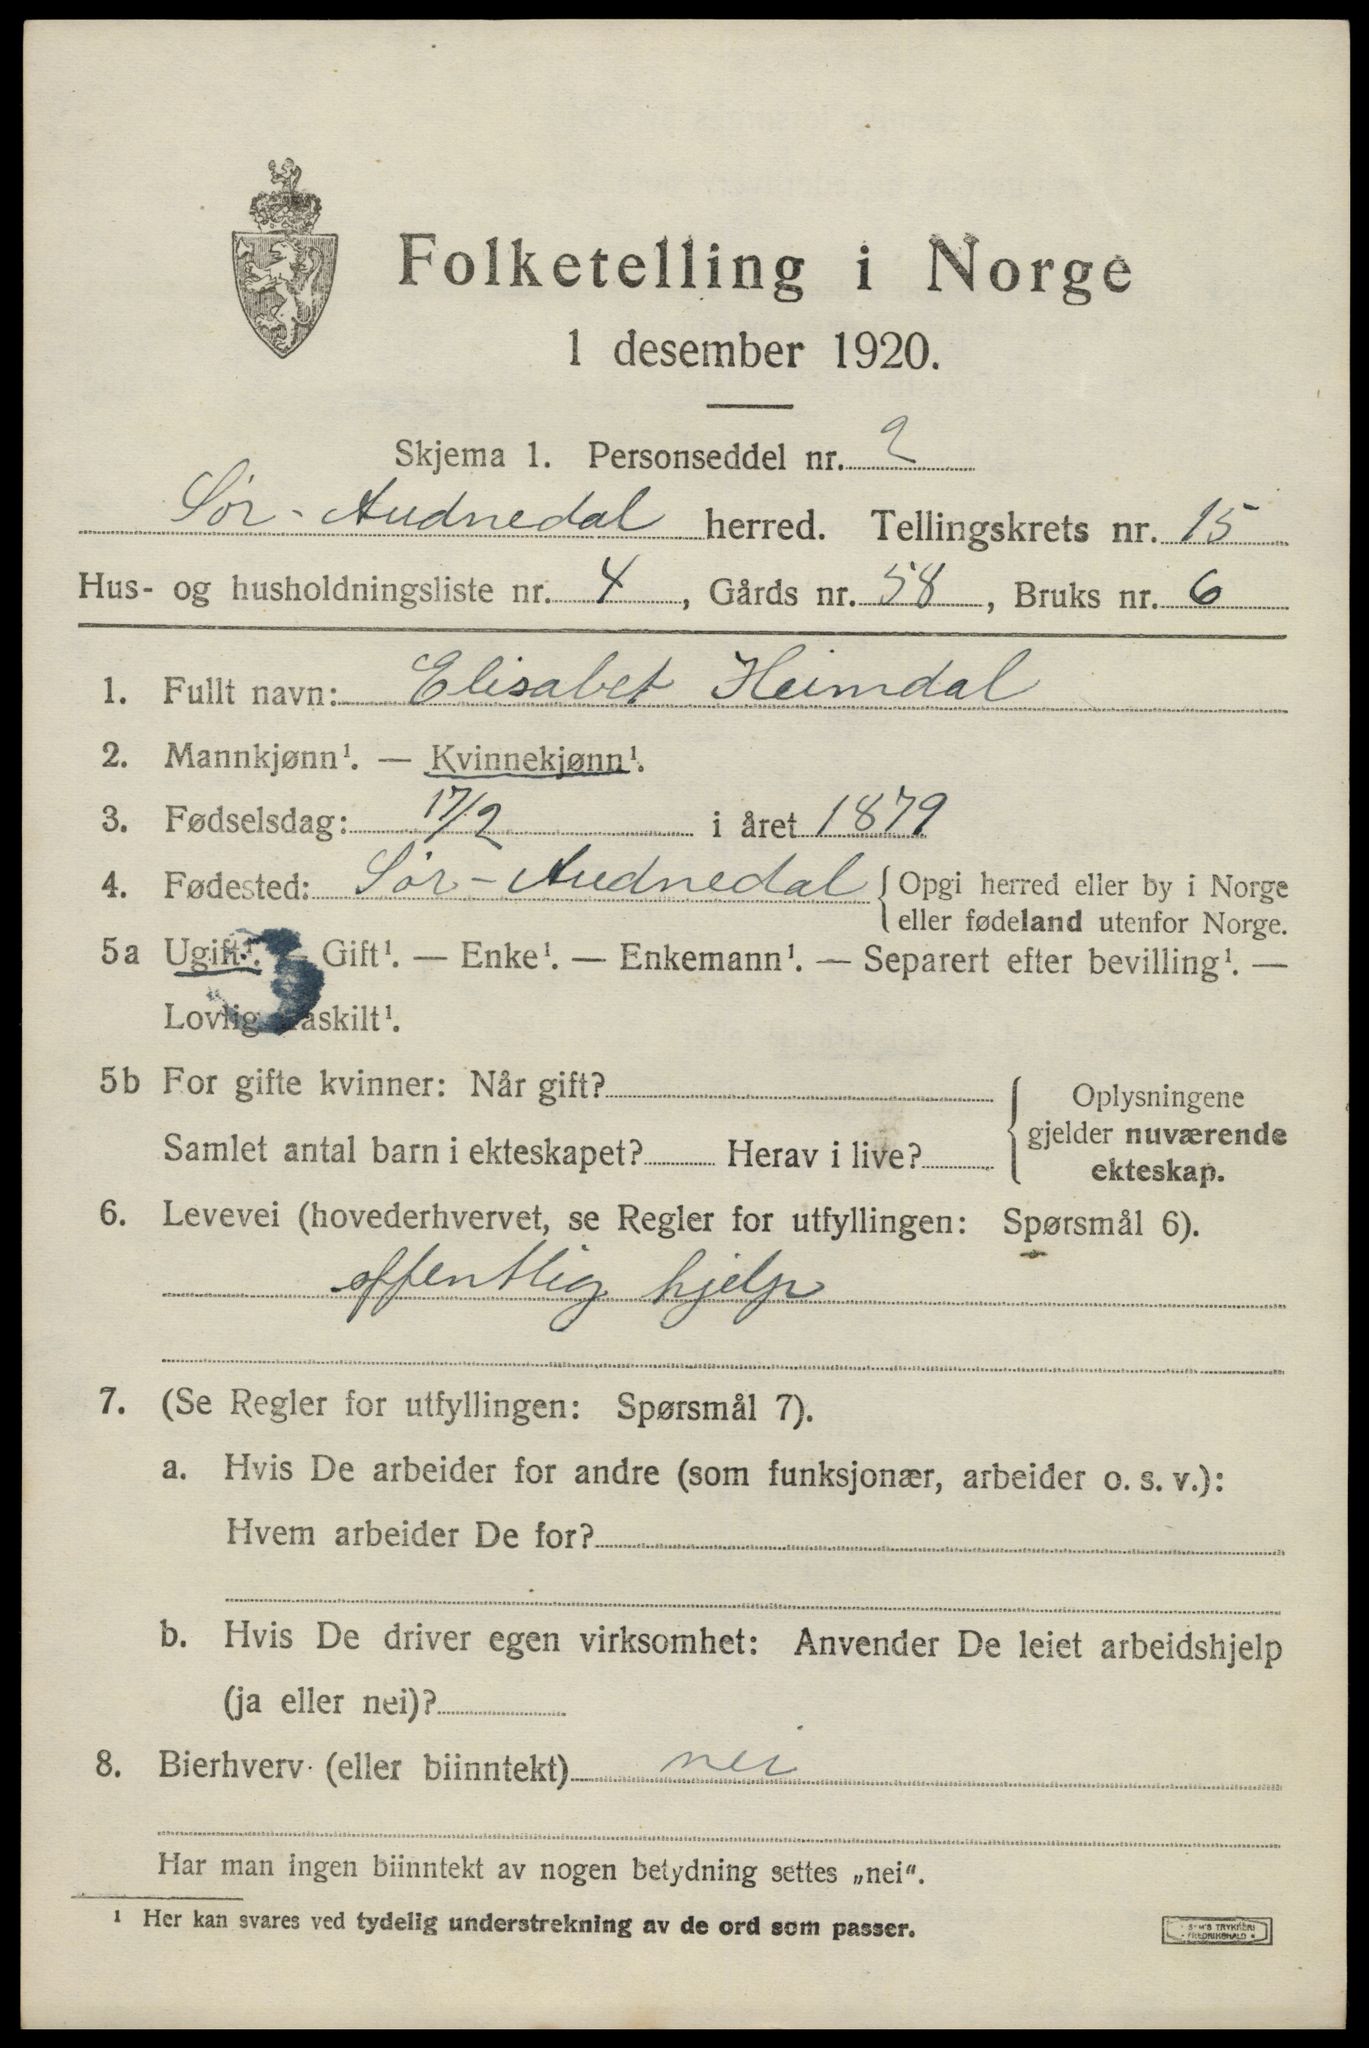 Folketelling i Norge
1 desember 1920.
Skjema 1. Personseddel nr. 2
Sør-Audnedal herred. Tellingskrets nr. 15
Hus- og husholdningsliste nr. 4, Gårds nr. 58, Bruks nr. 6
1. Fullt navn: Elisabet Heimdal
2. Mannkjønn¹. — Kvinnekjønn¹.
3. Fødselsdag: 17/2 i året 1879
4. Fødested: Sør-Audnedal { Opgi herred eller by i Norge
eller fødeland utenfor Norge.
5a Ugift¹. — Gift¹. — Enke¹. — Enkemann¹. — Separert efter bevilling¹. —
Lovlig fraskilt¹.
3
5b For gifte kvinner: Når gift?
Samlet antal barn i ekteskapet? Herav i live?
{ Oplysningene
gjelder nuværende
ekteskap.
6. Levevei (hovederhvervet, se Regler for utfyllingen: Spørsmål 6).
offentlig hjelp
7. (Se Regler for utfyllingen: Spørsmål 7).
a. Hvis De arbeider for andre (som funksjonær, arbeider o. s. v.):
Hvem arbeider De for?
b. Hvis De driver egen virksomhet: Anvender De leiet arbeidshjelp
(ja eller nei)?
8. Bierhverv (eller biinntekt) nei
Har man ingen biinntekt av nogen betydning settes „nei".
¹ Her kan svares ved tydelig understrekning av de ord som passer.
TRYKKERI
FREDRIKSHALD